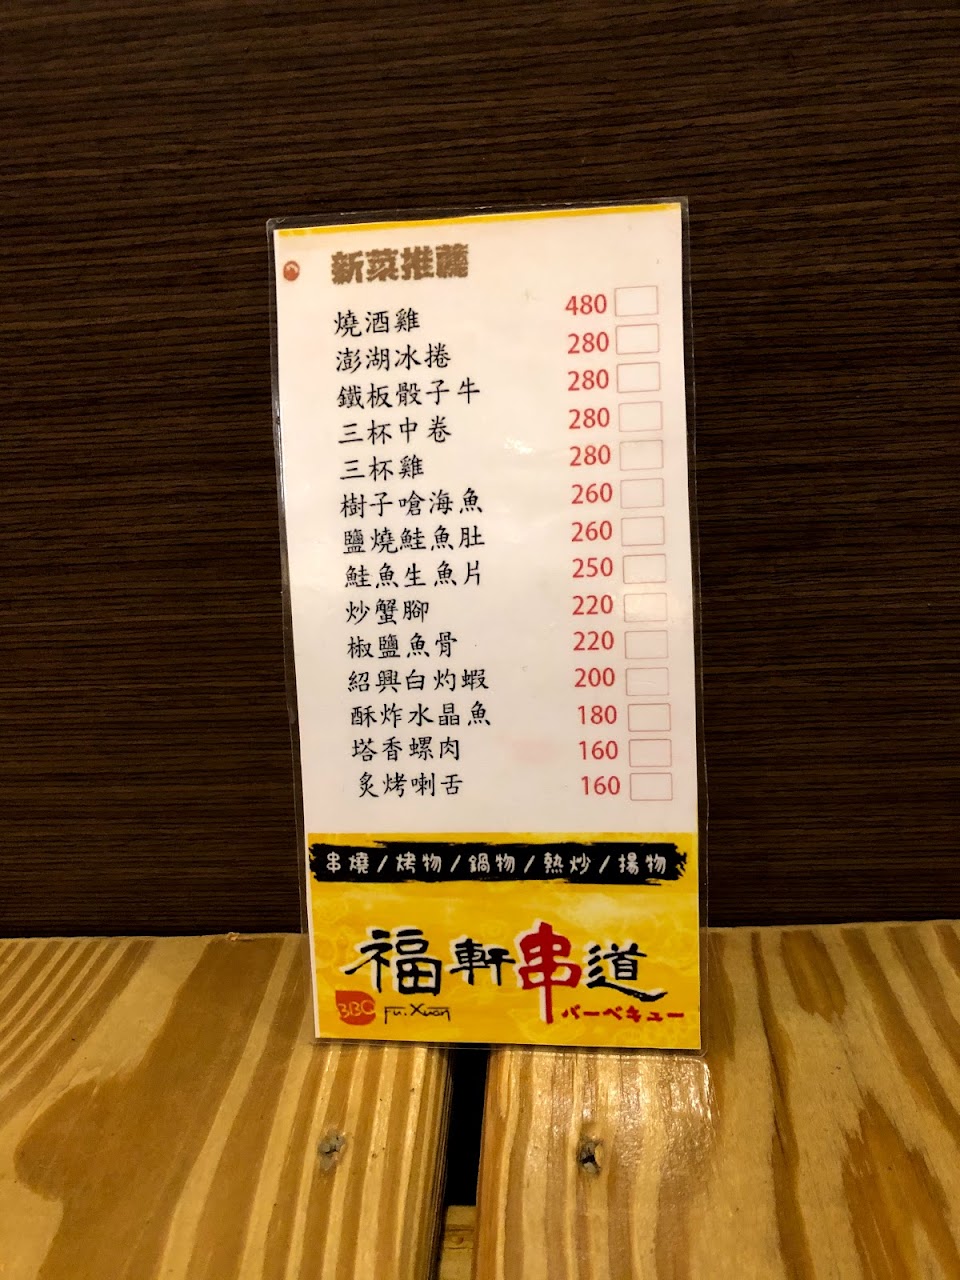 新菜推薦
燒酒雞 480
澎湖冰捲 280
鐵板骰子牛 280
三杯中卷 280
三杯雞 280
樹子嗆海魚 260
鹽燒鮭魚肚 260
鮭魚生魚片 250
炒蟹腳 220
椒鹽魚骨 220
紹興白灼蝦 200
酥炸水晶魚 180
塔香螺肉 160
炙烤喇舌 160
串燒/烤物/鍋物/熱炒/揚物
福軒串道
BBQ Fu.Xuan バーベキュー